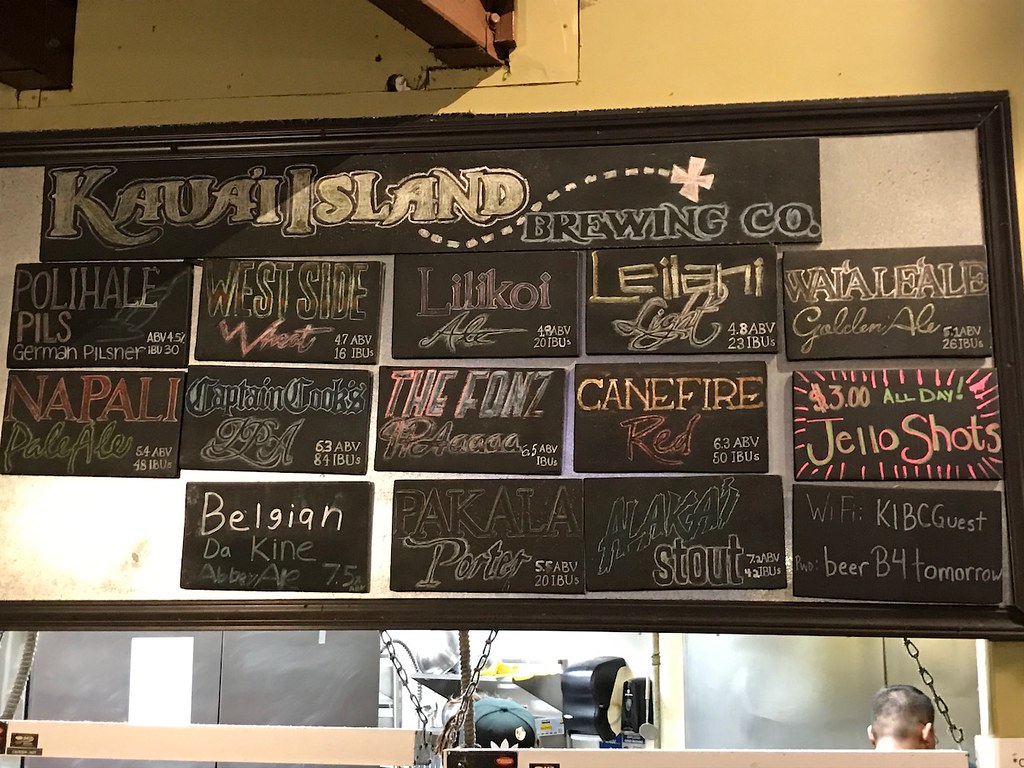 KAUA'I ISLAND
BREWING CO.
POLIHALE
PILS
German Pilsner
ABV 4.5%
IBU 30
WEST SIDE
Wheat
4.7 ABV
16 IBUs
Lilikoi
Ale
4.9 ABV
20 IBUs
Leilani
Light
4.8 ABV
23 IBUs
WAI'ALE'ALE
Golden Ale
5.1 ABV
26 IBUs
NAPALI
Pale Ale
5.4 ABV
48 IBUs
Captain Cook's
IPA
6.3 ABV
84 IBUs
THE FONZ
IPAaaaa
6.5 ABV
IBUs
CANEFIRE
Red
6.3 ABV
50 IBUs
$3.00 ALL DAY!
Jello Shots
Belgian
Da Kine
Abbey Ale 7.5
PAKALA
Porter
5.5 ABV
20 IBUs
ALAKA'I
stout
7.2 ABV
42 IBUs
WiFi: KIBCGuest
Pwd: beer B4 tomorrow